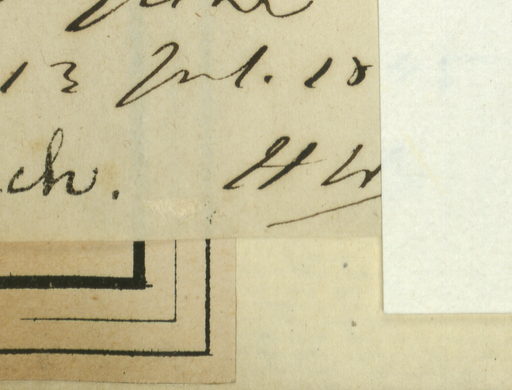 13 Jul. 18
ch.
H W